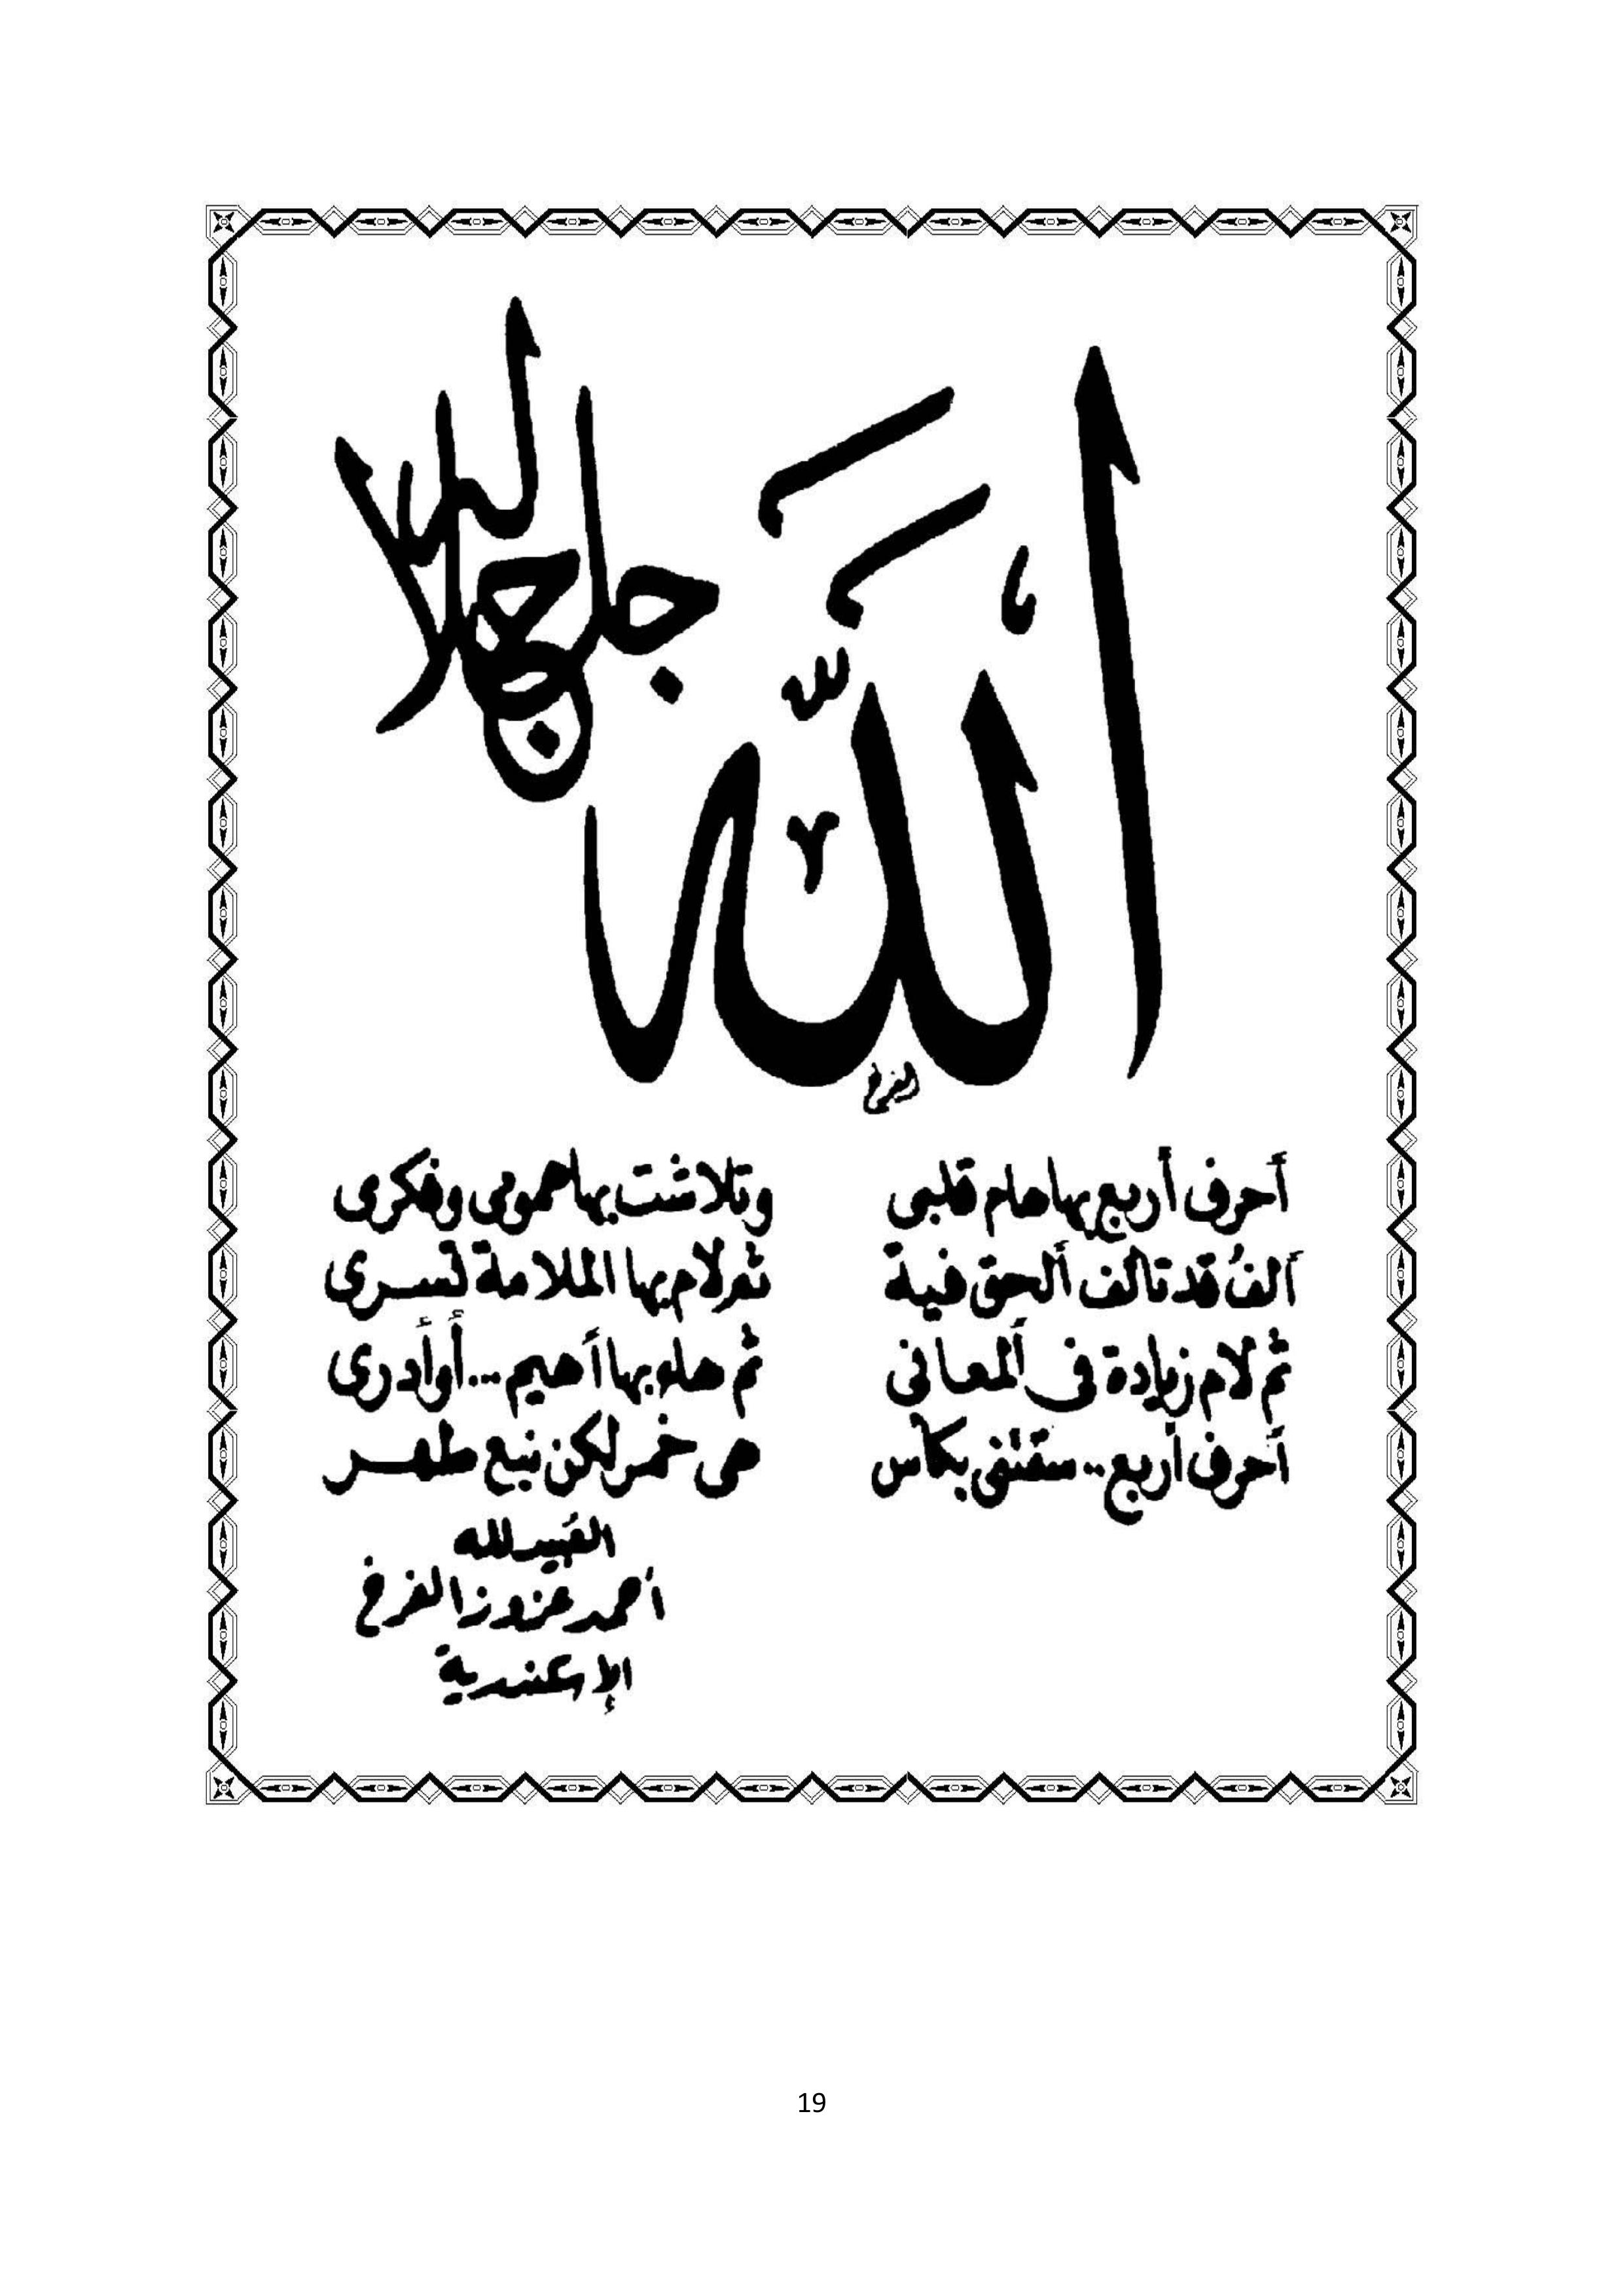 الله
جل جلاله
أحرف أربع بها هام قلبى وتلاشت بها همومى وفكرى
ألف قد تألف الحق فيه ثم لام بها الملامة تسرى
ثم لام زيادة فى المعانى ثم هاء بها أهيم... أو أدرى
أحرف أربع.. سقتنى بكأس من خمر لكن نبع طهر
العبيد لله
أحمد
الإسكندرية
19